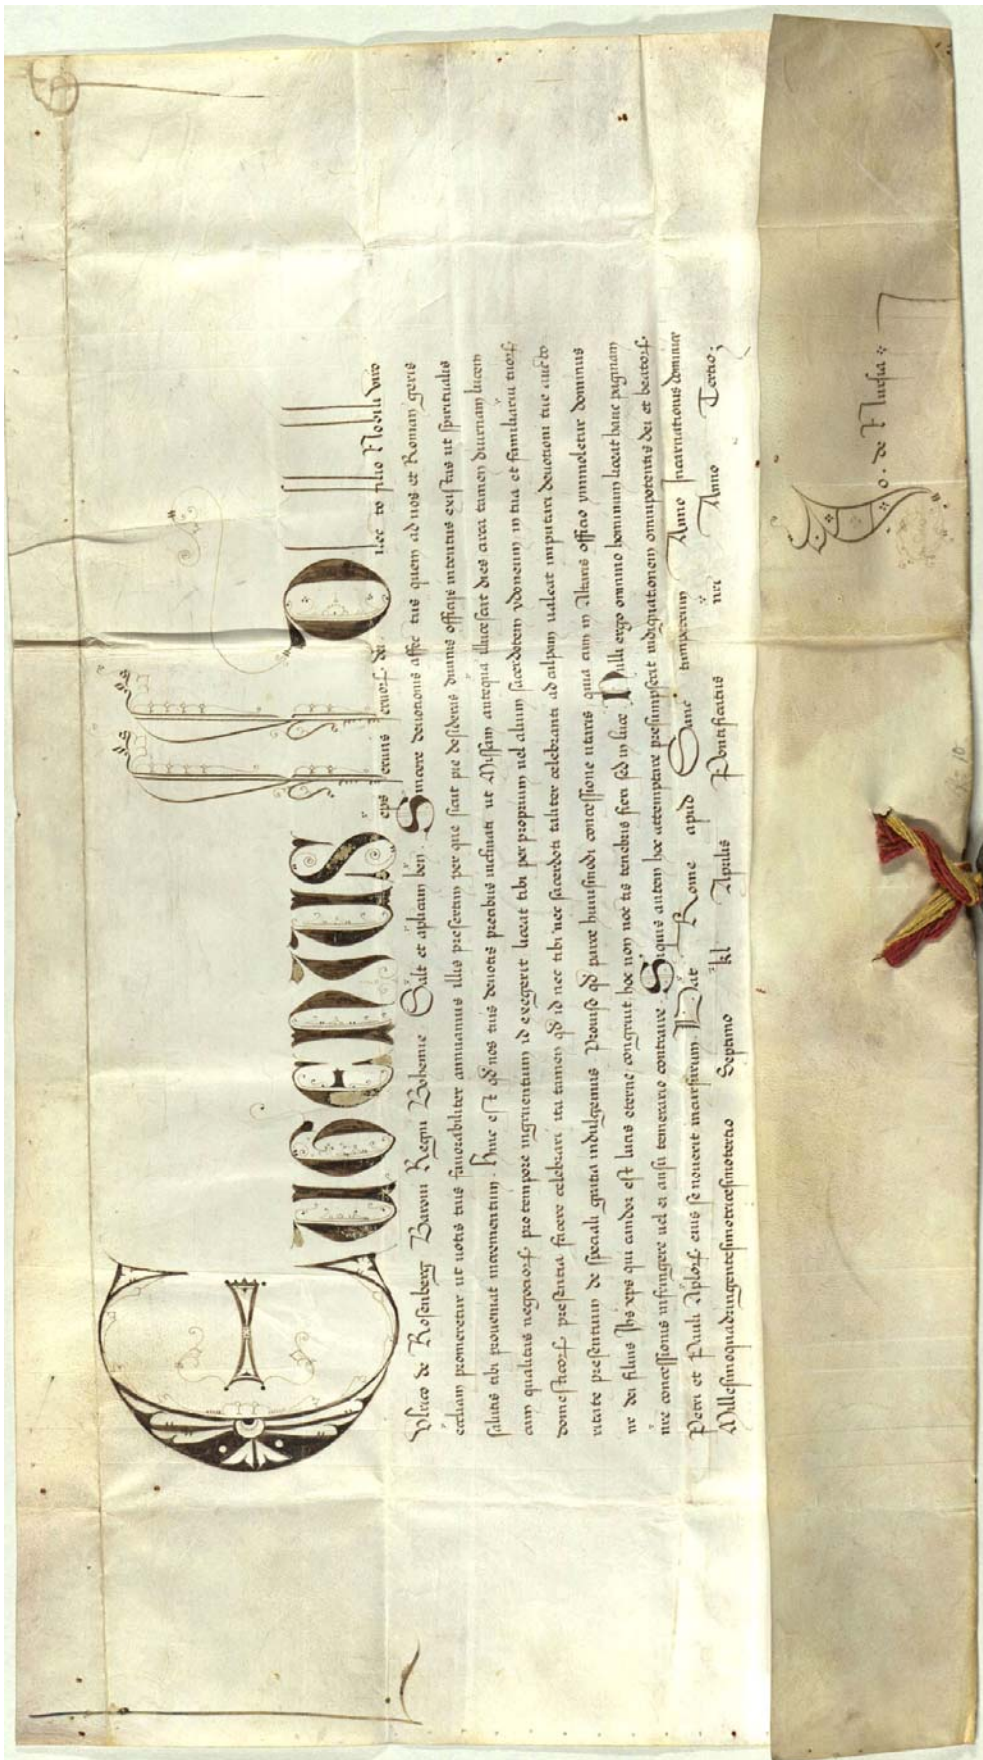 EUGENIUS eps seruus seruorum dei Dilecto filio Nobili viro
Vlrico de Rosenberg Baroni Regni Bohemie Salt et aplicam ben. Sincere deuotionis affectus quem ad nos et Roman geris
eccliam promeretur ut uotis tuis fauorabiliter annuamus illis presertim per que sicut pie desideras diuinis officijs intentus existas ut spiritualis
salutis tibi proueniat incrementum. Hinc est qd nos tuis deuotis precibus inclinati ut Missam antequa illucescat dies circa tamen diurnam lucem
cum qualitas negotiorum pro tempore ingruentium id exegerit liceat tibi per proprium uel alium sacerdotem ydoneum in tua et familiariu tuorum
domesticorum presentia facere celebrari ita tamen qd id nec tibi nec sacerdoti taliter celebranti ad culpam ualeat imputari deuotioni tue aucto
ritate presentium de speciali gratia indulgemus Prouiso qd parce huiusmodi concessione utaris quia cum in Altaris officio ymmoletur dominus
nr dei filius Jhs xps qui candor est lucis eterne congruit hoc non noctis tenebris fieri sed in luce Nulli ergo omnino hominum liceat hanc paginam
nre concessionis infringere uel ei ausu temerario contraire. Siquis autem hoc attemptare presumpserit indignationem omnipotentis dei et beatorum
Petri et Pauli Aplorum eius se nouerit incursurum Dat Rome apud Sanctum petrum Anno Incarnationis dominice
Millesimoquadringentesimotricesimotertio Septimo kl Aprilis Pontificatus nri Anno Tertio;
Jo. de Nursia